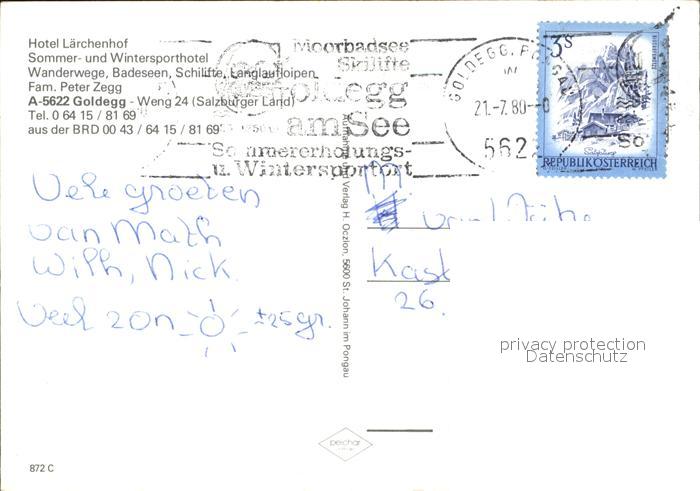 Hotel Lärchenhof
Sommer- und Wintersporthotel
Wanderwege, Badeseen, Schilifte, Langlaufloipen
Fam. Peter Zegg
A-5622 Goldegg - Weng 24 (Salzburger Land)
Tel. 0 64 15 / 81 69
aus der BRD 00 43 / 64 15 / 81 69
Moorbadsee
Skilifte
Goldegg
am See
Sommererholungs-
u. Wintersportort
GOLDEGG, PONGAU
21.-7.80-0
562
3S
REPUBLIK ÖSTERREICH
Vele groeten
van Math
Wilh, Nick.
Veel zon ±25gr.
Kast
26.
Verlag H. Oczlon, 5600 St. Johann im Pongau
privacy protection
Datenschutz
peichar
872 C